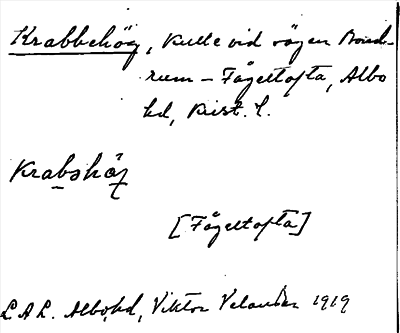 Krabbehög, kulle vid vägen Bond-
rum – Fågeltofta, Albo
hd, Krist. l.
Krabshö̱ʒ
[Fågeltofta]
L.A.L. Albo hd, Viktor Velander 1919